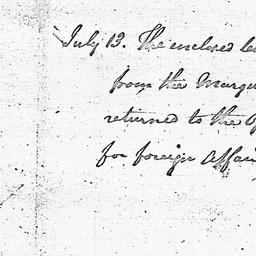 July 13. The enclosed le
from the Marqu
returned to the O
for foreign Affai